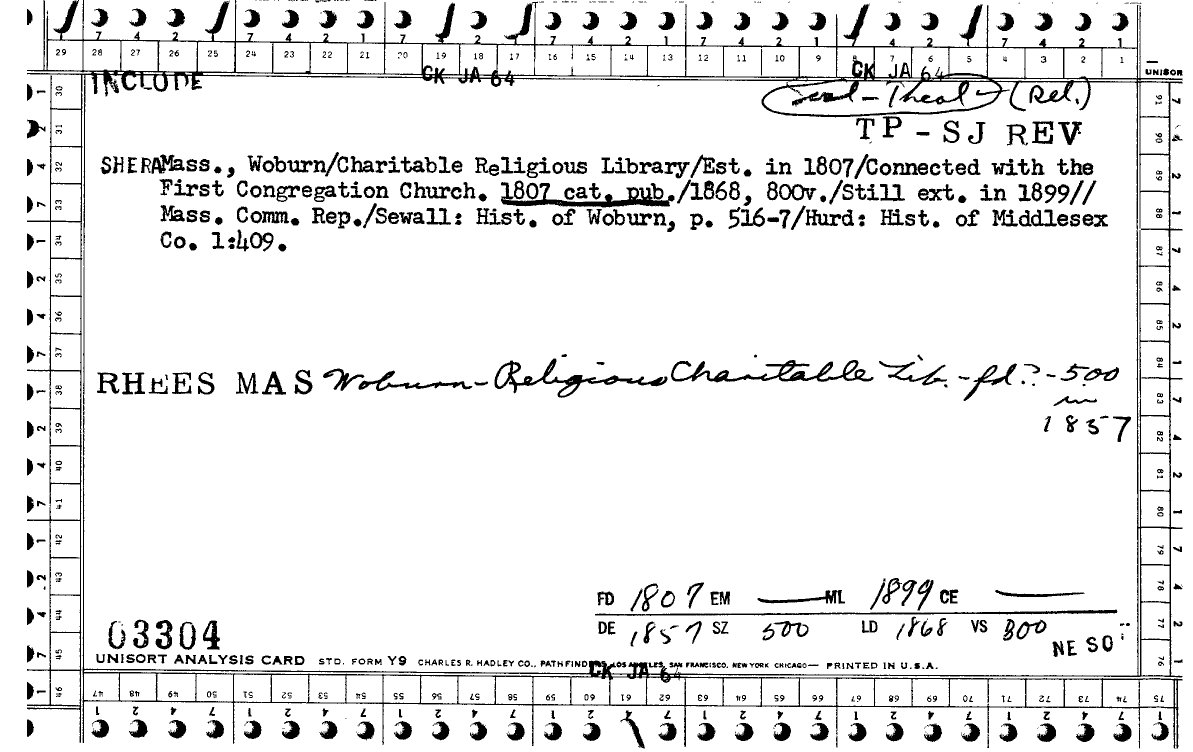 7 4 2 1 7 4 2 1 7 4 2 1 7 4 2 1 7 4 2 1 7 4 2 1
29 28 27 26 25 24 23 22 21 20 19 18 17 16 15 14 13 12 11 10 9 8 7 6 5 4 3 2 1
INCLUDE CK JA 64 CK JA 64 UNISOR
(Rel.)
TP - SJ REV
SHERA Mass., Woburn/Charitable Religious Library/Est. in 1807/Connected with the
First Congregation Church. 1807 cat. pub./1868, 800v./Still ext. in 1899//
Mass. Comm. Rep./Sewall: Hist. of Woburn, p. 516-7/Hurd: Hist. of Middlesex
Co. 1:409.
RHEES MAS Woburn - Religious Charitable Lib. - fd.? - 500
in
1857
FD 1807 EM — ML 1899 CE —
DE 1857 SZ 500 LD 1868 VS 800
NE SO
03304
UNISORT ANALYSIS CARD STD. FORM Y9 CHARLES R. HADLEY CO., PATHFINDERS, LOS ANGELES, SAN FRANCISCO, NEW YORK CHICAGO — PRINTED IN U.S.A.
CK JA 64
30 31 32 33 34 35 36 37 38 39 40 41 42 43 44 45 46
91 90 89 88 87 86 85 84 83 82 81 80 79 78 77 76
47 48 49 50 51 52 53 54 55 56 57 58 59 60 61 62 63 64 65 66 67 68 69 70 71 72 73 74 75